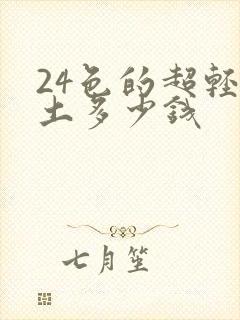 24色的超轻
土多少钱
七月笙